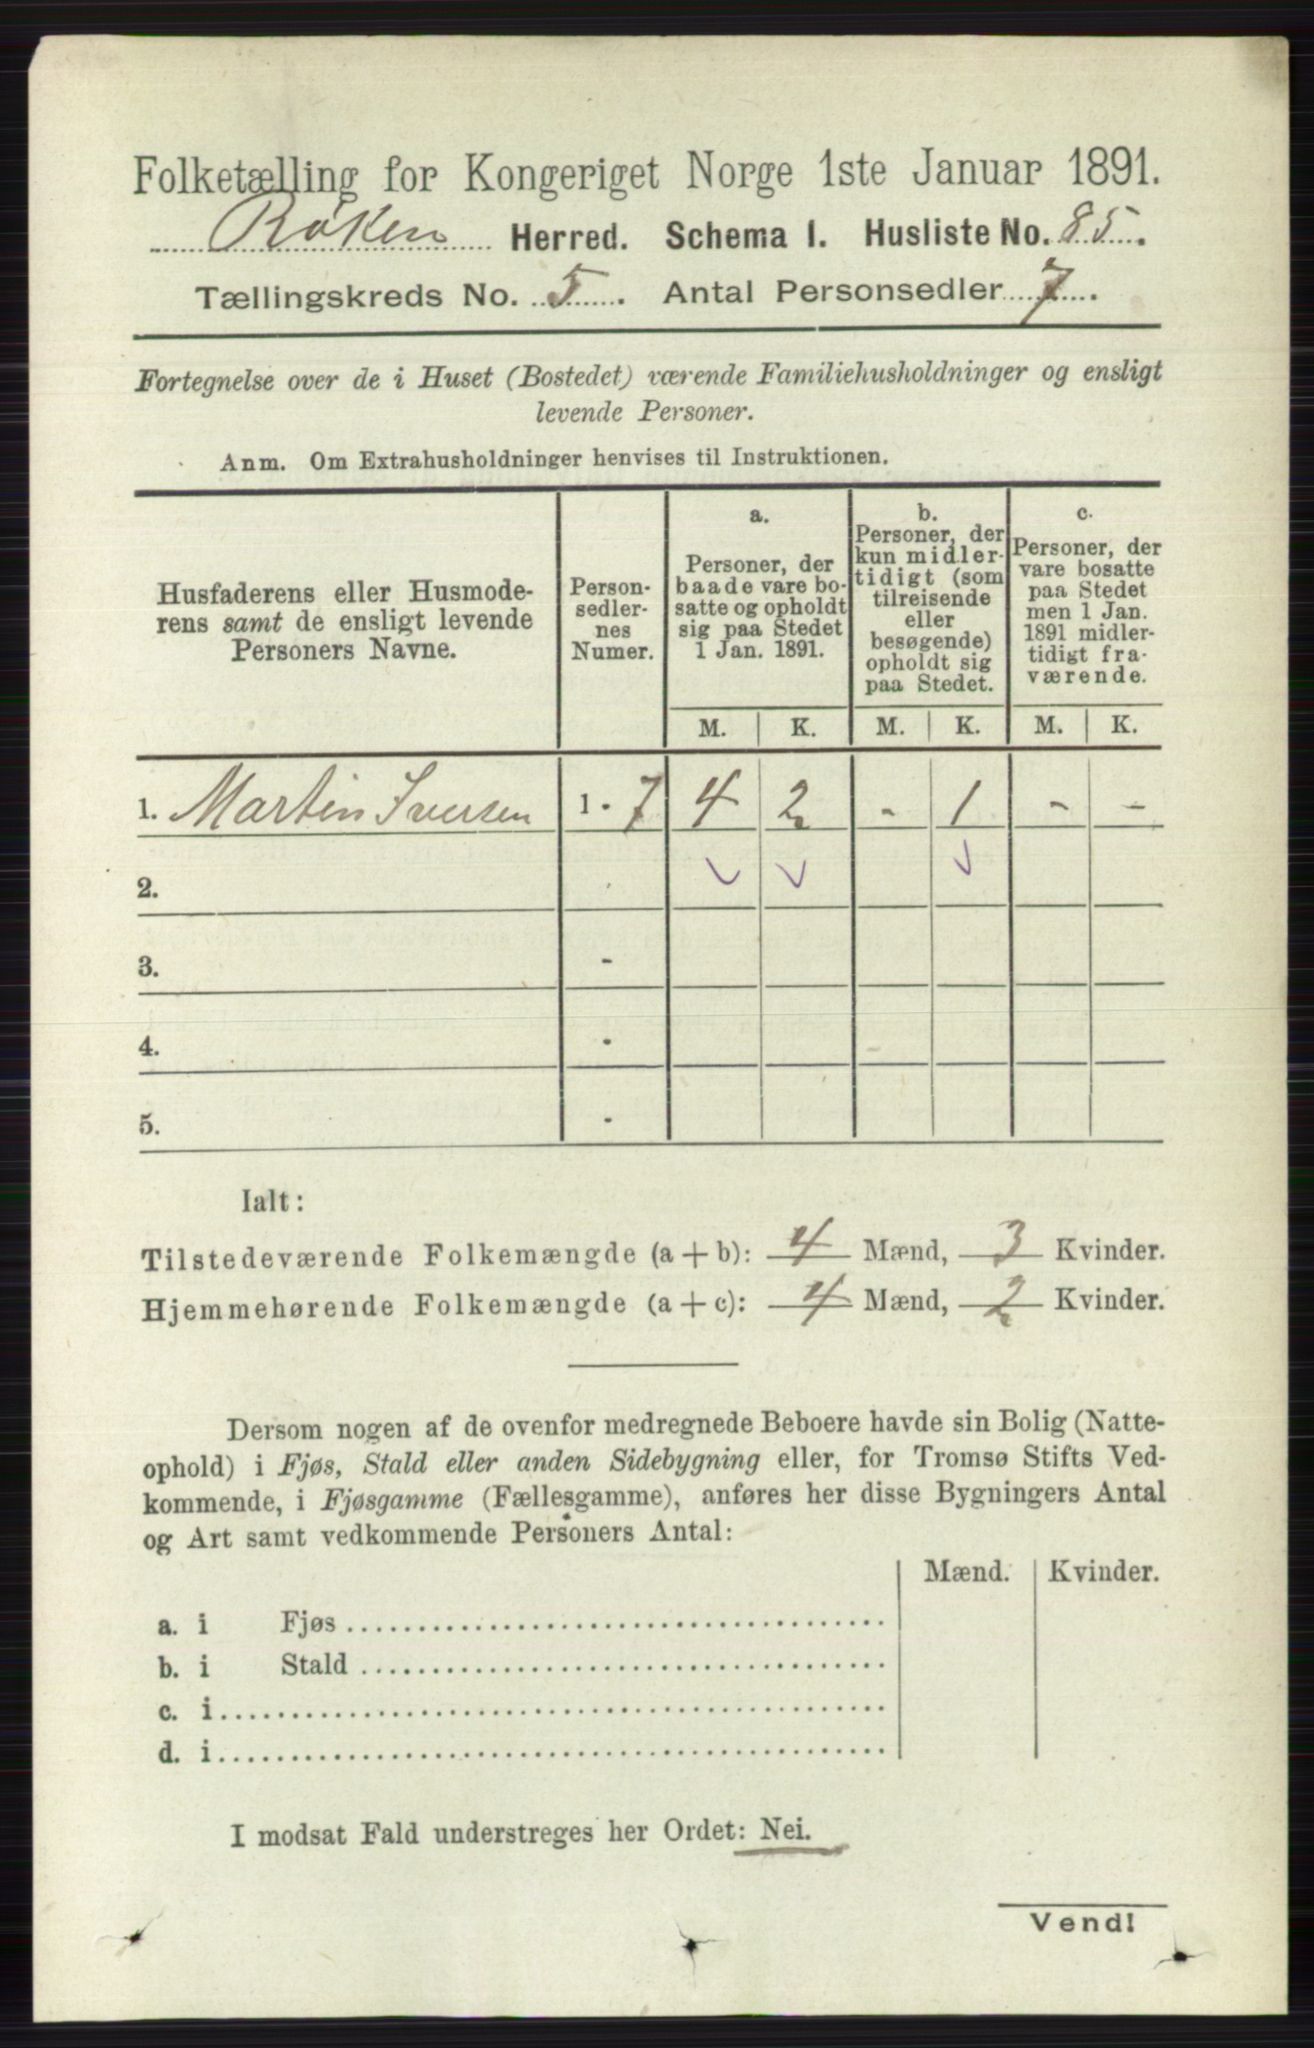 Folketælling for Kongeriget Norge 1ste Januar 1891.
Røken Herred. Schema I. Husliste No. 85.
Tællingskreds No. 5. Antal Personsedler 7.
Fortegnelse over de i Huset (Bostedet) værende Familiehusholdninger og ensligt
levende Personer.
Anm. Om Extrahusholdninger henvises til Instruktionen.
Husfaderens eller Husmode-
rens samt de ensligt levende
Personers Navne.
Person-
sedler-
nes
Numer.
a.
Personer, der
baade vare bo-
satte og opholdt
sig paa Stedet
1 Jan. 1891.
b.
Personer, der
kun midler-
tidigt (som
tilreisende
eller
besøgende)
opholdt sig
paa Stedet.
c.
Personer, der
vare bosatte
paa Stedet
men 1 Jan.
1891 midler-
tidigt fra-
værende.
M. K. M. K. M. K.
1. Martin Iversen 1 - 7 4 2 - 1 - -
2.
3. -
4. -
5. -
Ialt:
Tilstedeværende Folkemængde (a + b): 4 Mænd, 3 Kvinder.
Hjemmehørende Folkemængde (a + c): 4 Mænd, 2 Kvinder.
Dersom nogen af de ovenfor medregnede Beboere havde sin Bolig (Natte-
ophold) i Fjøs, Stald eller anden Sidebygning eller, for Tromsø Stifts Ved-
kommende, i Fjøsgamme (Fællesgamme), anføres her disse Bygningers Antal
og Art samt vedkommende Personers Antal:
Mænd. Kvinder.
a. i Fjøs
b. i Stald
c. i
d. i
I modsat Fald understreges her Ordet: Nei.
Vend!